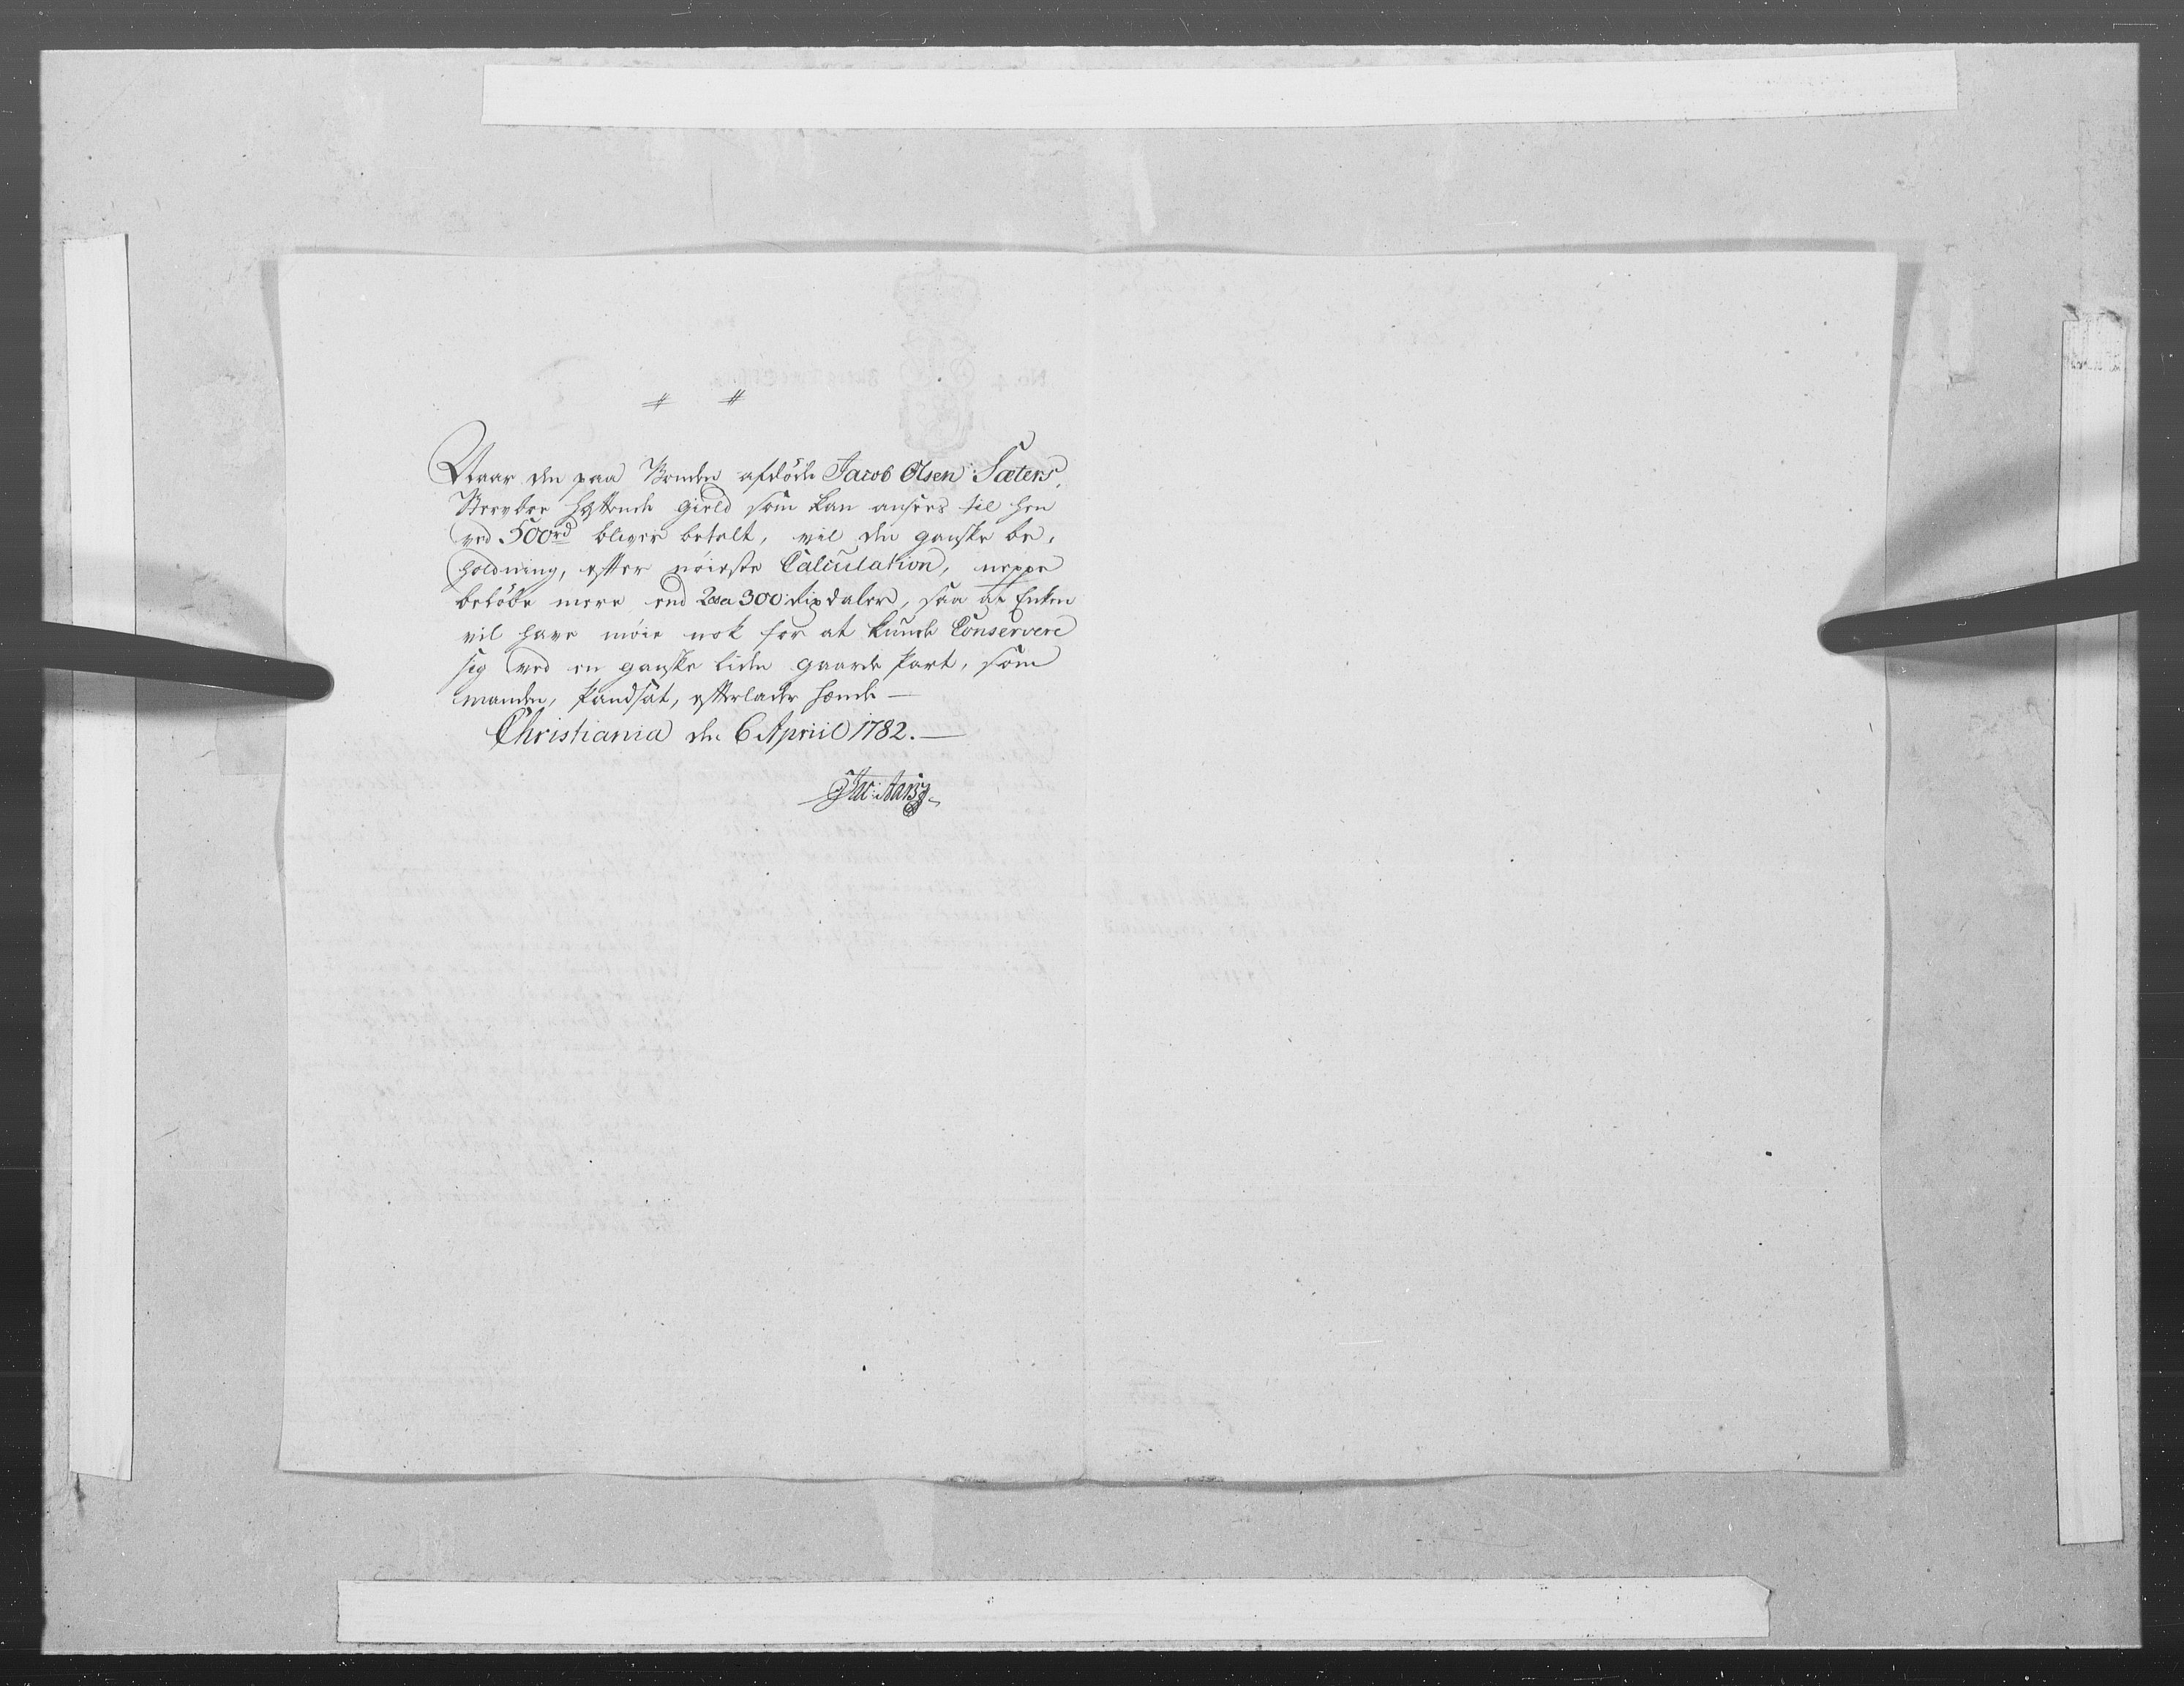 # #
Naar den paa Bonden afdöde Jacob Olsen Sæters,
Stervboe hæftende Gield som kan ansees til hen
ved 500rd bliver betalt, vil den ganske be,
holdning, efter nöieste Calculation, neppe
belöbe mere end 200 a 300 Rixdaler, saa at Enken
vil have möie nok for at kunde Conservere
sig ved en ganske liden gaarde Part, som
manden, Pandsat, efterlader hende —
Christiania den 6 Apriil 1782. —